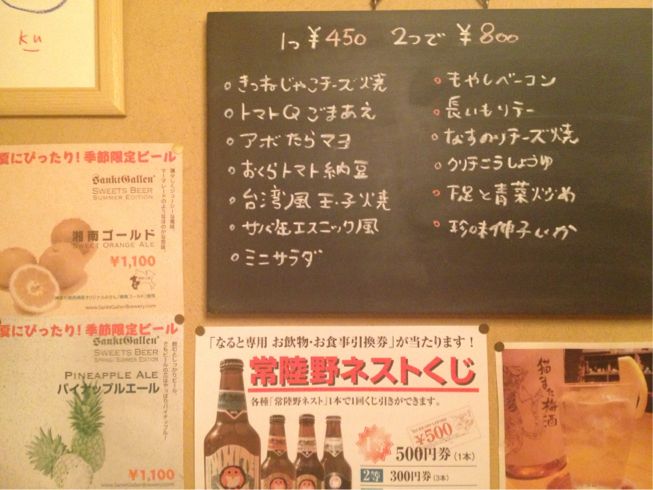 Ku
1つ ¥450 2つで ¥800
きつねじゃこチーズ焼
トマトQごまあえ
アボたらマヨ
おくらトマト納豆
台湾風玉子焼
サバ缶エスニック風
ミニサラダ
もやしベーコン
長いもソテー
なすのりチーズ焼
クリチこうしょうゆ
下足と青菜炒め
夏にぴったり!季節限定ビール
SanktGallen
SWEETS BEER
SUMMER EDITION
湘南ゴールド
SWEET ORANGE ALE
¥1,100
www.SanktGallenBrewery.com
夏にぴったり!季節限定ビール
SanktGallen
SWEETS BEER
PINEAPPLE ALE
パイナップルエール
¥1,100
www.SanktGallenBrewery.com
「なると専用 お飲物・お食事引換券」が当たります!
常陸野ネストくじ
各種「常陸野ネスト」1本で1回くじ引ができます。
¥500
1等
500円券(1本)
2等
300円券(3本)
猫また梅酒